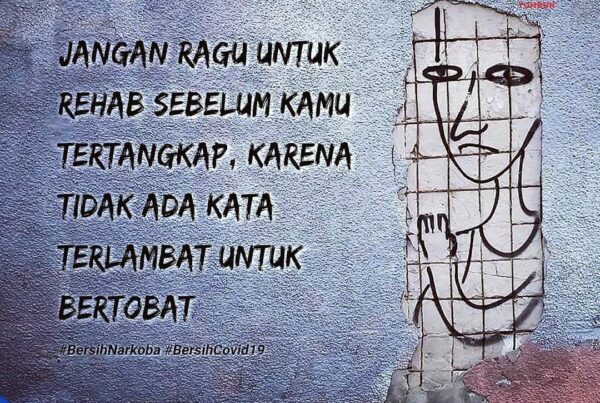 TUMBUH
JANGAN RAGU UNTUK
REHAB SEBELUM KAMU
TERTANGKAP, KARENA
TIDAK ADA KATA
TERLAMBAT UNTUK
BERTOBAT
#BersihNarkoba #BersihCovid19